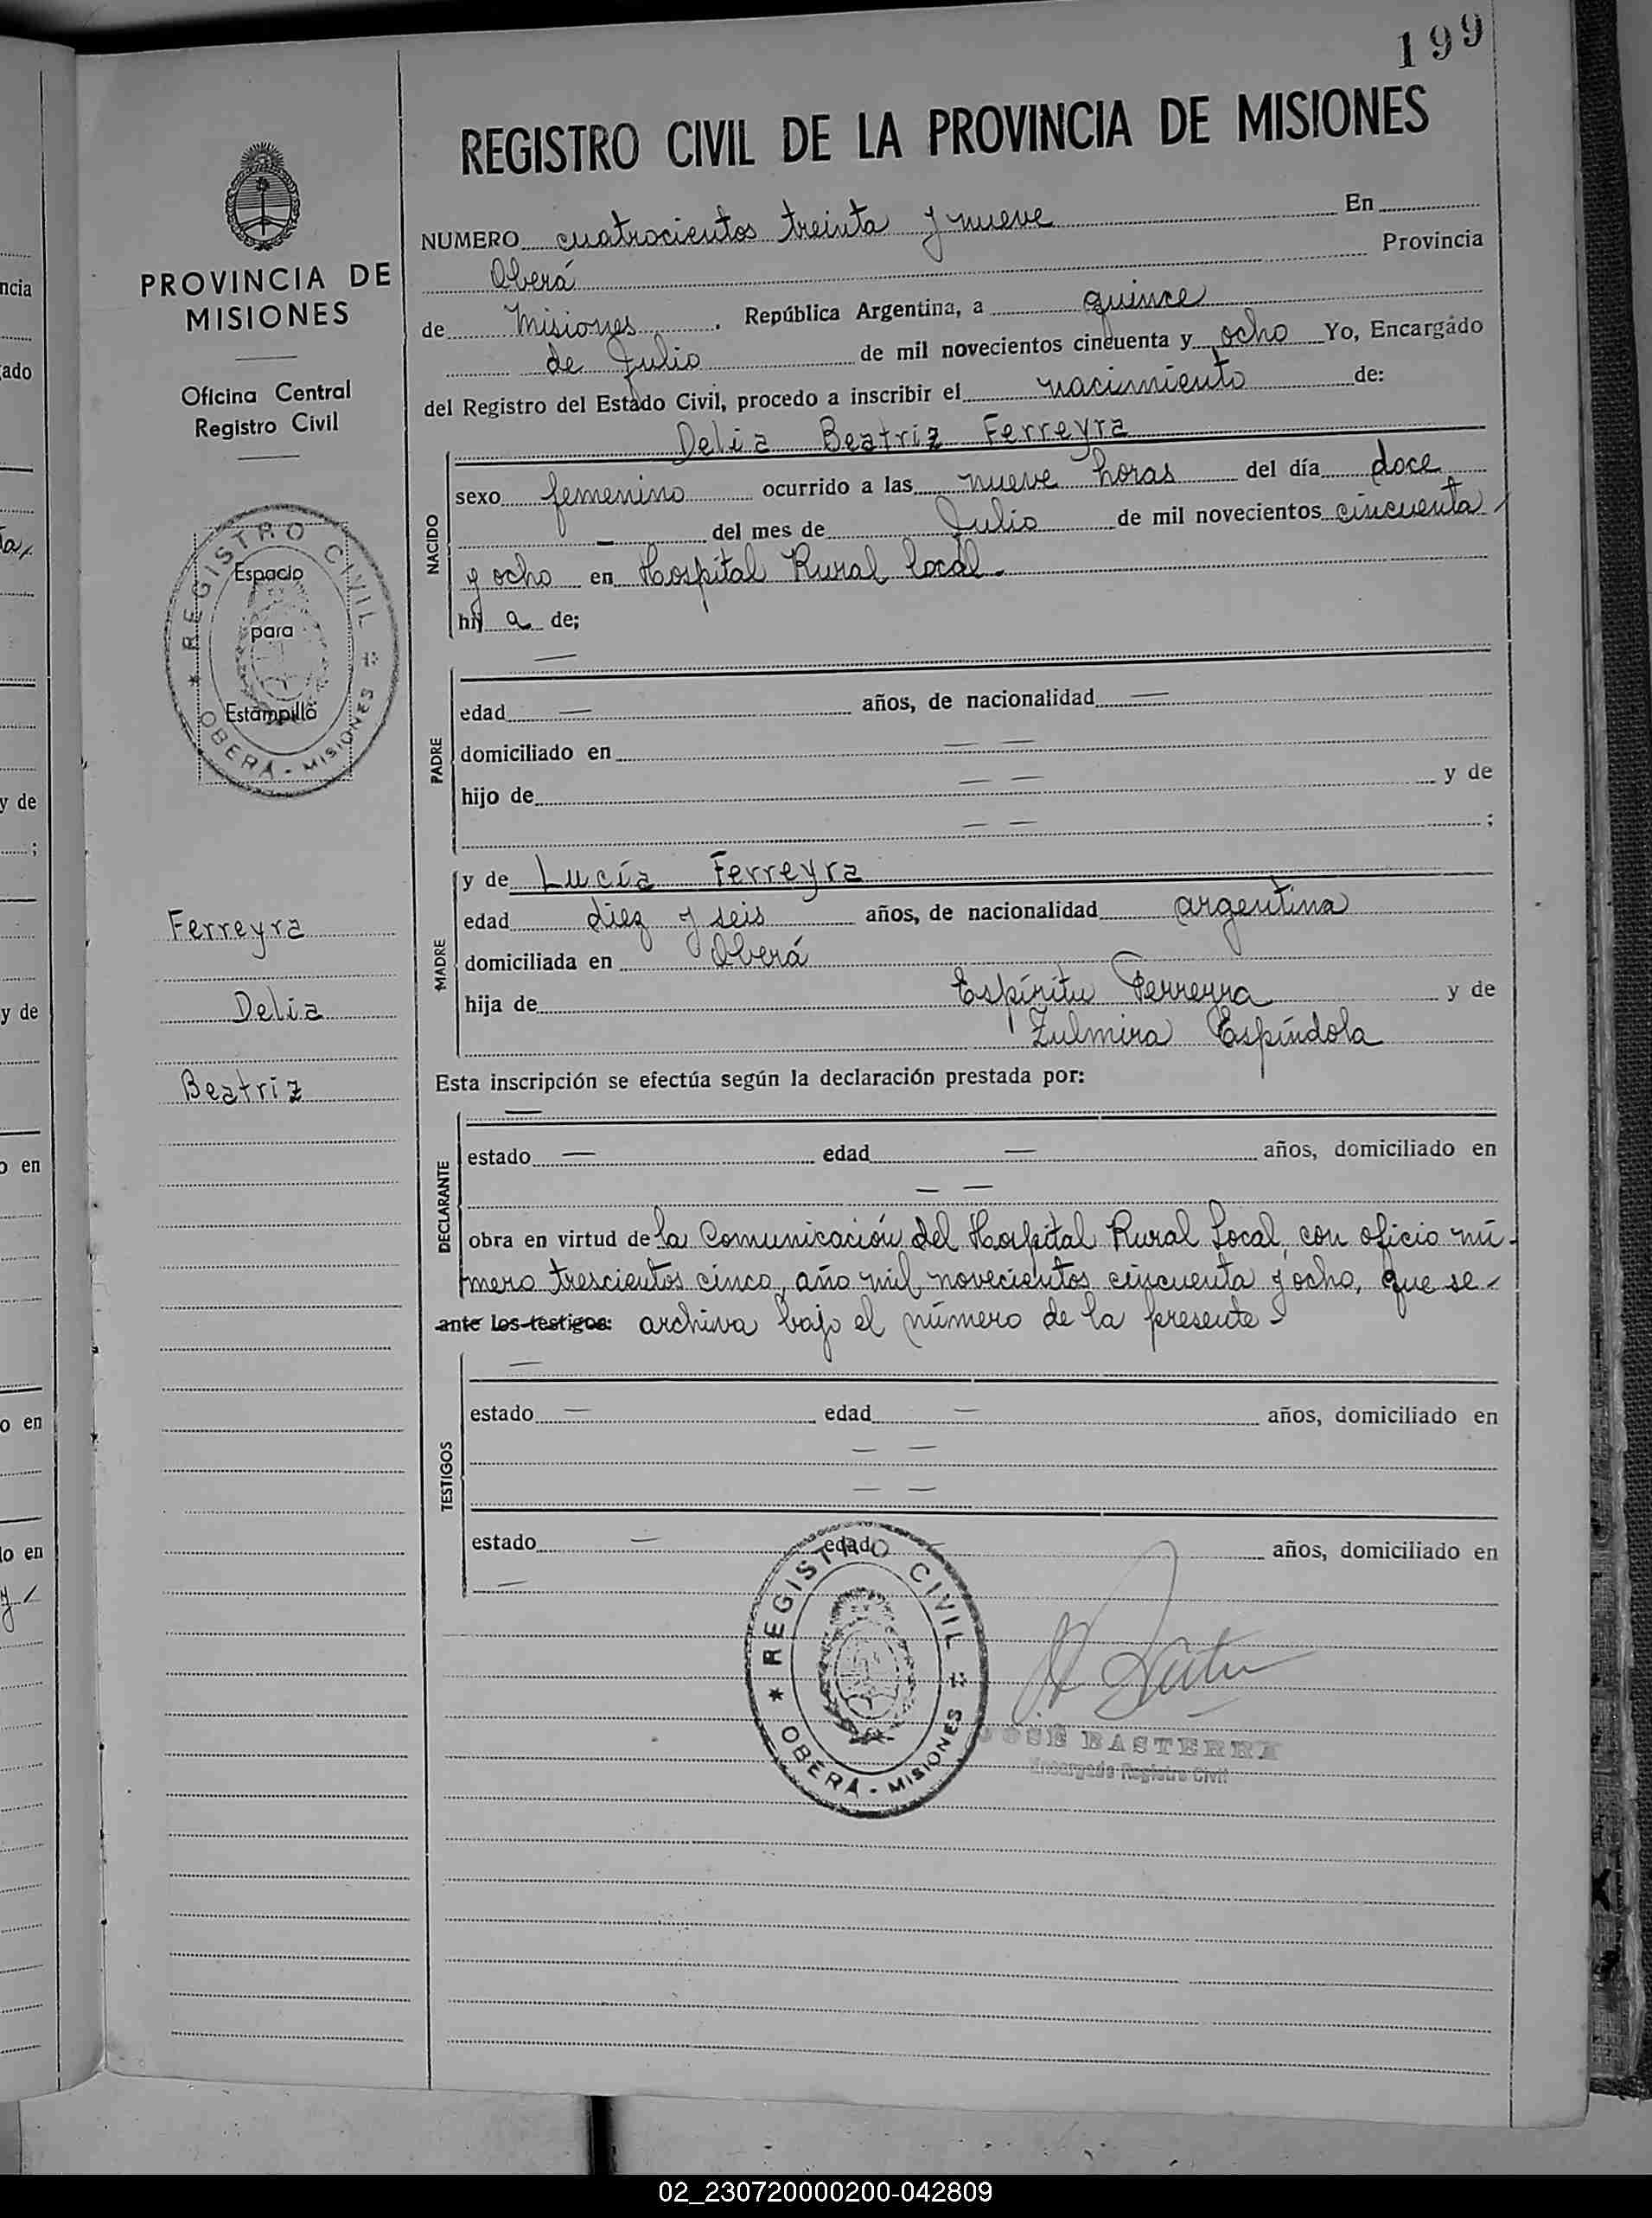 199
REGISTRO CIVIL DE LA PROVINCIA DE MISIONES
PROVINCIA DE
MISIONES
Oficina Central
Registro Civil
REGISTRO CIVIL
OBERÁ - MISIONES
Espacio
para
Estampilla
Ferreyra
Delia
Beatriz
NUMERO cuatrocientos treinta y nueve En
Oberá Provincia
de Misiones, República Argentina, a quince
de Julio de mil novecientos cincuenta y ocho Yo, Encargado
del Registro del Estado Civil, procedo a inscribir el nacimiento de:
Delia Beatriz Ferreyra
NACIDO
sexo femenino ocurrido a las nueve horas del día doce
— del mes de Julio de mil novecientos cincuenta
y ocho en Hospital Rural local.
hij a de;
PADRE
—
edad — años, de nacionalidad —
domiciliado en — —
hijo de — — y de
— — ;
MADRE
y de Lucía Ferreyra
edad diez y seis años, de nacionalidad argentina
domiciliada en Oberá
hija de Espíritu Ferreyra y de
Zulmira Espíndola
Esta inscripción se efectúa según la declaración prestada por:
DECLARANTE
—
estado — edad — años, domiciliado en
— —
obra en virtud de la Comunicación del Hospital Rural Local, con oficio nú-
mero trescientos cinco, año mil novecientos cincuenta y ocho, que se
ante los testigos: archiva bajo el número de la presente -
TESTIGOS
—
estado — edad — años, domiciliado en
— —
— —
estado — edad años, domiciliado en
—
REGISTRO CIVIL
OBERÁ - MISIONES
JOSÉ BASTERRA
Encargado Registro Civil
ncia
ado
ta,
y de
;
y de
o en
o en
lo en
y
02_230720000200-042809